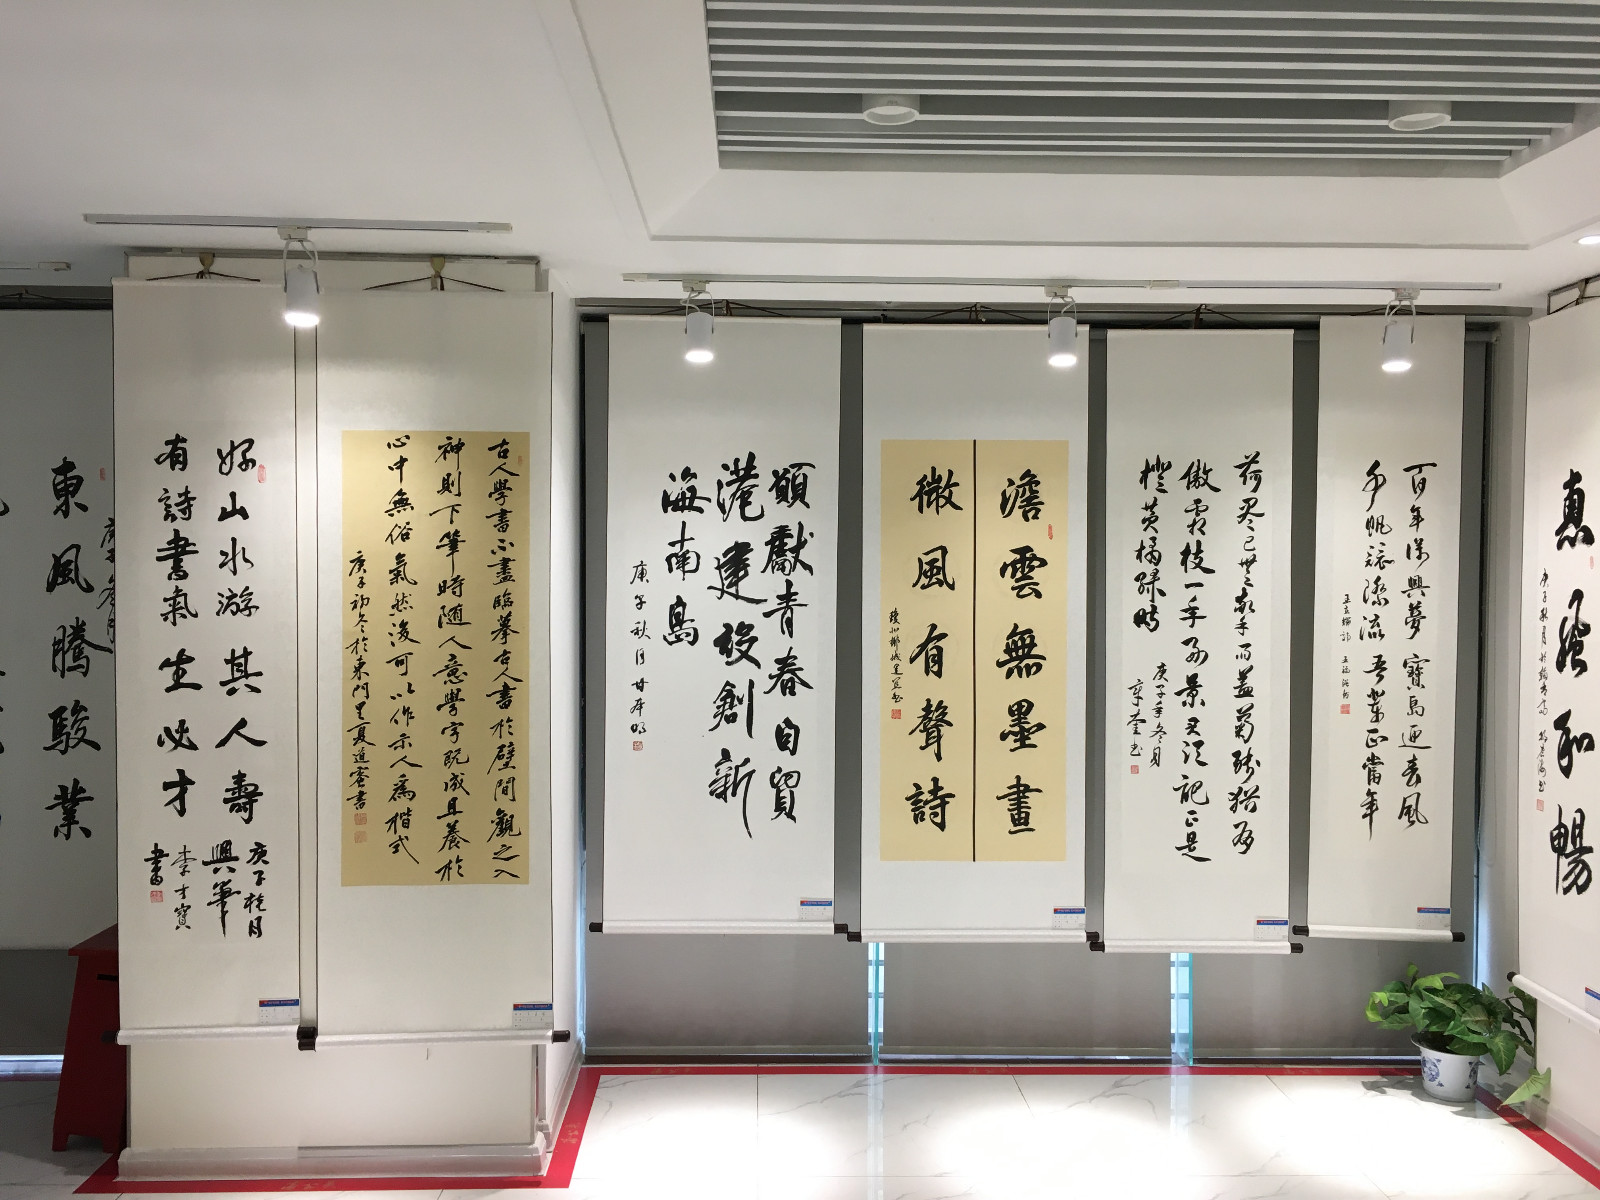 東風騰駿業
好山水游其人壽
有詩書氣生必才
庚子桂月
興筆
李才寶
書
古人學書不盡臨摹古人書於壁間觀之入
神則下筆時随人意學字既成且養於
心中無俗氣然後可以作示人為楷式
庚子初冬於東門里夏道密書
願獻青春自貿
港建設創新
海南島
庚子秋月甘本明
澹雲無墨畫
微風有聲詩
荷尽已無擎雨蓋菊残猶有
傲霜枝一年好景君須記正是
橙黄橘緑時
庚子年冬月
章奎书
百年復興夢寶島迎春風
千帆競際流吾輩正當年
惠風和暢